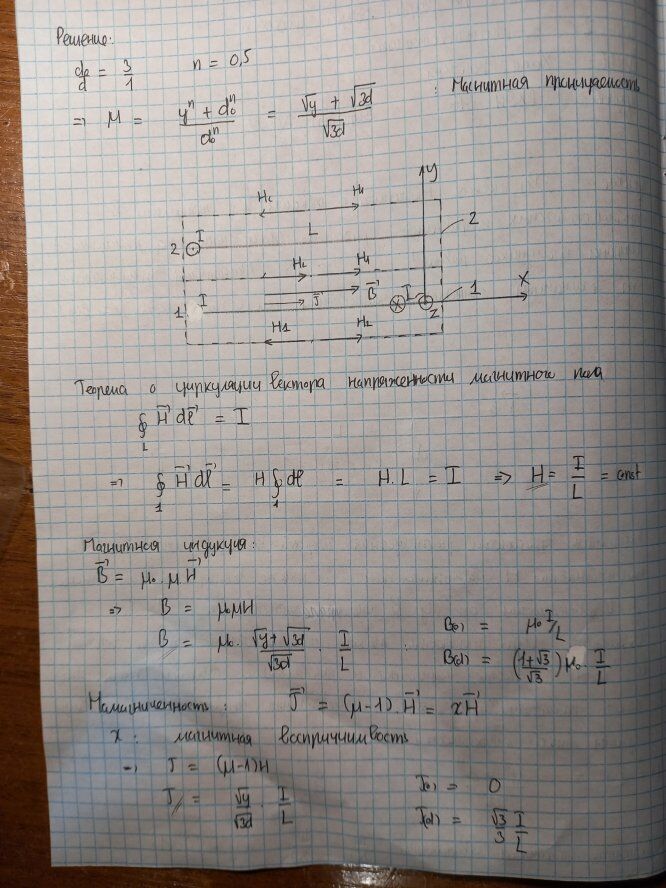 Решение:
d₀/d = 3/1 n = 0,5
⇒ μ = (yⁿ + d₀ⁿ)/d₀ⁿ = (√y + √3d)/√3d : Магнитная проницаемость
y
H₂ H₁
2 I L 2
H₂ H₁
1 I J⃗ B⃗ I z 1 x
H1 H₂
Теорема о циркуляции вектора напряженности магнитного поля
∮L H⃗ dℓ⃗ = I
⇒ ∮1 H⃗ dℓ⃗ = H ∮1 dℓ = H.L = I ⇒ H = I/L = const
Магнитная индукция:
B⃗ = μ₀.μ H⃗
⇒ B = μ₀μH
B = μ₀ . (√y + √3d)/√3d . I/L
B(0) = μ₀ I/L
B(d) = ((1+√3)/√3) μ₀ . I/L
Намагниченность: J⃗ = (μ-1).H⃗ = χH⃗
χ : магнитная восприимчивость
⇒ J = (μ-1)H
J = √y/√3d . I/L
J(0) = 0
J(d) = √3/3 I/L